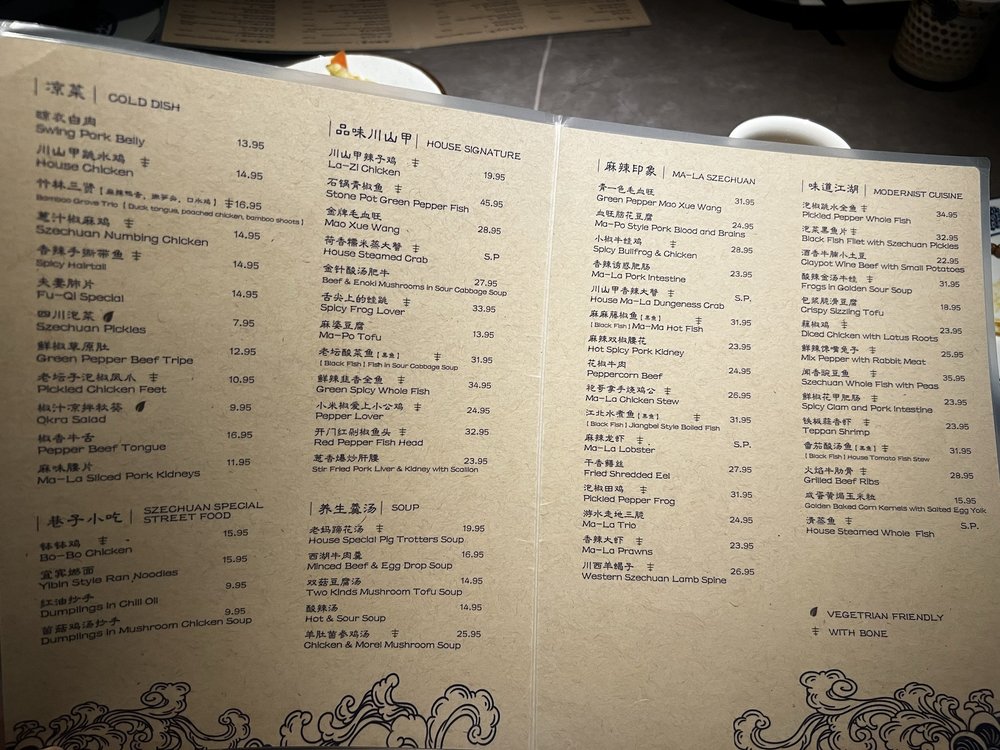 凉菜 COLD DISH
晾衣白肉
Swing Pork Belly 13.95
川山甲跳水鸡
House Chicken 14.95
竹林三贤【麻辣鸭舌、嫩笋尖、口水鸡】
Bamboo Grove Trio [ Duck tongue, poached chicken, bamboo shoots ] 16.95
葱汁椒麻鸡
Szechuan Numbing Chicken 14.95
香辣手撕带鱼
Spicy Hairtail 14.95
夫妻肺片
Fu-Qi Special 14.95
四川泡菜
Szechuan Pickles 7.95
鲜椒草原肚
Green Pepper Beef Tripe 12.95
老坛子泡椒凤爪
Pickled Chicken Feet 10.95
椒汁凉拌秋葵
Okra Salad 9.95
椒香牛舌
Pepper Beef Tongue 16.95
麻味腰片
Ma-La Sliced Pork Kidneys 11.95
巷子小吃 SZECHUAN SPECIAL
STREET FOOD
钵钵鸡
Bo-Bo Chicken 15.95
宜宾燃面
Yibin Style Ran Noodles 15.95
红油炒手
Dumplings in Chili Oil 9.95
菌菇鸡汤炒手
Dumplings in Mushroom Chicken Soup 9.95
品味川山甲 HOUSE SIGNATURE
川山甲辣子鸡
La-Zi Chicken 19.95
石锅青椒鱼
Stone Pot Green Pepper Fish 45.95
金牌毛血旺
Mao Xue Wang 28.95
荷香糯米蒸大蟹
House Steamed Crab S.P
金针酸汤肥牛
Beef & Enoki Mushrooms in Sour Cabbage Soup 27.95
舌尖上的蛙跳
Spicy Frog Lover 33.95
麻婆豆腐
Ma-Po Tofu 13.95
老坛酸菜鱼【黑鱼】
[ Black Fish ] Fish in Sour Cabbage Soup 31.95
鲜辣韭香全鱼
Green Spicy Whole Fish 34.95
小米椒爱上小公鸡
Pepper Lover 24.95
开门红剁椒鱼头
Red Pepper Fish Head 32.95
葱香爆炒肝腰
Stir Fried Pork Liver & Kidney with Scallion 23.95
养生羹汤 SOUP
老妈蹄花汤
House Special Pig Trotters Soup 19.95
西湖牛肉羹
Minced Beef & Egg Drop Soup 16.95
双菇豆腐汤
Two Kinds Mushroom Tofu Soup 14.95
酸辣汤
Hot & Sour Soup 14.95
羊肚菌参鸡汤
Chicken & Morel Mushroom Soup 25.95
麻辣印象 MA-LA SZECHUAN
青一色毛血旺
Green Pepper Mao Xue Wang 31.95
血旺脑花豆腐
Ma-Po Style Pork Blood and Brains 24.95
小椒牛蛙鸡
Spicy Bullfrog & Chicken 28.95
香辣诱惑肥肠
Ma-La Pork Intestine 23.95
川山甲香辣大蟹
House Ma-La Dungeness Crab S.P.
麻麻藤椒鱼【黑鱼】
[ Black Fish ] Ma-Ma Hot Fish 31.95
麻辣双椒腰花
Hot Spicy Pork Kidney 23.95
花椒牛肉
Peppercorn Beef 24.95
袍哥拿手烧鸡公
Ma-La Chicken Stew 26.95
江北水煮鱼【黑鱼】
[ Black Fish ] Jiangbei Style Boiled Fish 31.95
麻辣龙虾
Ma-La Lobster S.P.
干香鳝丝
Fried Shredded Eel 27.95
泡椒田鸡
Pickled Pepper Frog 31.95
游水走地三脆
Ma-La Trio 24.95
香辣大虾
Ma-La Prawns 23.95
川西羊蝎子
Western Szechuan Lamb Spine 26.95
味道江湖 MODERNIST CUISINE
泡椒跳水全鱼
Pickled Pepper Whole Fish 34.95
泡菜黑鱼片
Black Fish Fliet with Szechuan Pickles 32.95
酒香牛腩小土豆
Claypot Wine Beef with Small Potatoes 22.95
酸辣金汤牛蛙
Frogs in Golden Sour Soup 31.95
包浆脆滑豆腐
Crispy Sizzling Tofu 18.95
藕椒鸡
Diced Chicken with Lotus Roots 23.95
鲜辣馋嘴兔子
Mix Pepper with Rabbit Meat 25.95
闻香豌豆鱼
Szechuan Whole Fish with Peas 35.95
鲜椒花甲肥肠
Spicy Clam and Pork Intestine 23.95
铁板蒜香虾
Teppan Shrimp 23.95
番茄酸汤鱼【黑鱼】
[ Black Fish ] House Tomato Fish Stew 31.95
火焰牛肋骨
Grilled Beef Ribs 28.95
咸蛋黄焗玉米粒
Golden Baked Corn Kernels with Salted Egg Yolk 15.95
清蒸鱼
House Steamed Whole Fish S.P.
VEGETRIAN FRIENDLY
WITH BONE